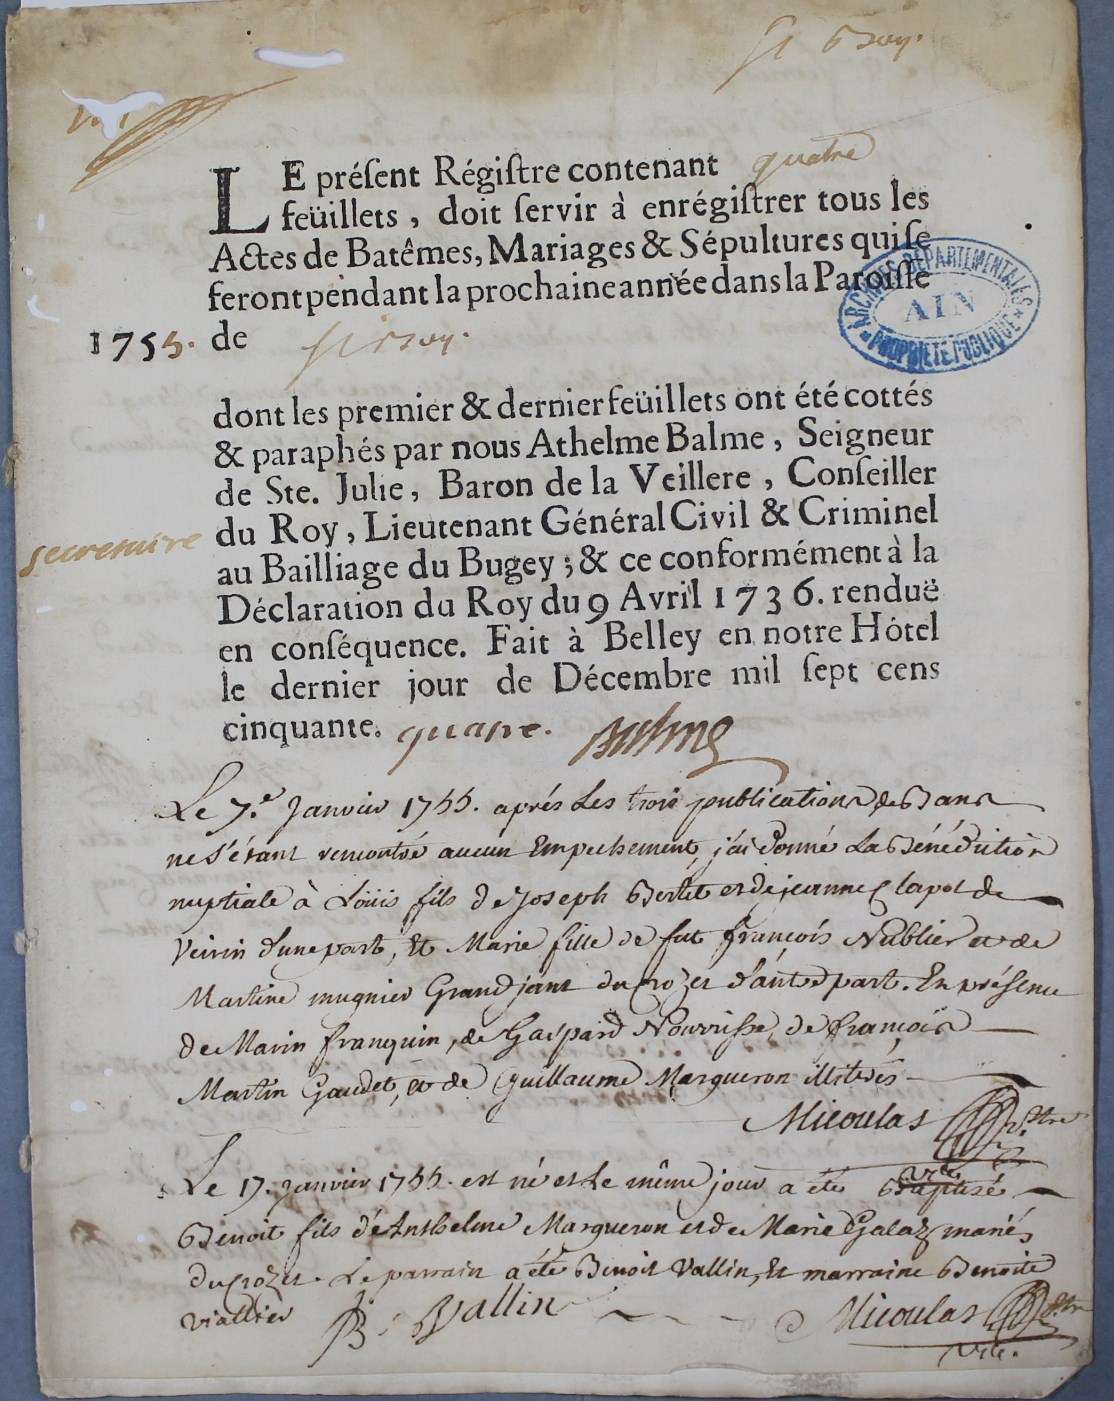 quatre
LE préſent Régiſtre contenant
feüillets, doit ſervir à enrégiſtrer tous les
Actes de Batêmes, Mariages & Sépultures qui ſe
feront pendant la prochaine année dans la Paroiſſe
1755. de
ARCHIVES DEPARTEMENTALES
AIN
PROPRIETE PUBLIQUE
dont les premier & dernier feüillets ont été cottés
& paraphés par nous Athelme Balme, Seigneur
de Ste. Julie, Baron de la Veillere, Conſeiller
secretaire du Roy, Lieutenant Général Civil & Criminel
au Bailliage du Bugey; & ce conformément à la
Déclaration du Roy du 9 Avril 1736. renduë
en conſéquence. Fait à Belley en notre Hôtel
le dernier jour de Décembre mil ſept cens
cinquante. quatre. Balme
Le 7.e Janvier 1755. aprés Les trois publications de Bans
ne s'étant rencontré aucun Empechement, j'ai Donné La Bénédiction
nuptiale à Loüis fils de Joseph Bertet et de jeanne Clapot de
Veirin d'une part, Et Marie fille de fut françois Nublier et de
Martine mugnier Grandjant du crozet d'autre part. En présence
de Marin franquin, de Gaspard Nourrisse, de françois
Martin Gaudet, et de Guillaume Margueron illiterés
Micoulas ptre
vic.
Le 17. janvier 1755. est né et Le même jour a été Baptisé
Benoit fils d'Anthelme Margueron et de Marie Galaz mariés
du crozet. Le parrain a été Benoit Vallin, Et marraine Benoite
viallier B. Vallin Micoulas ptre
vic.